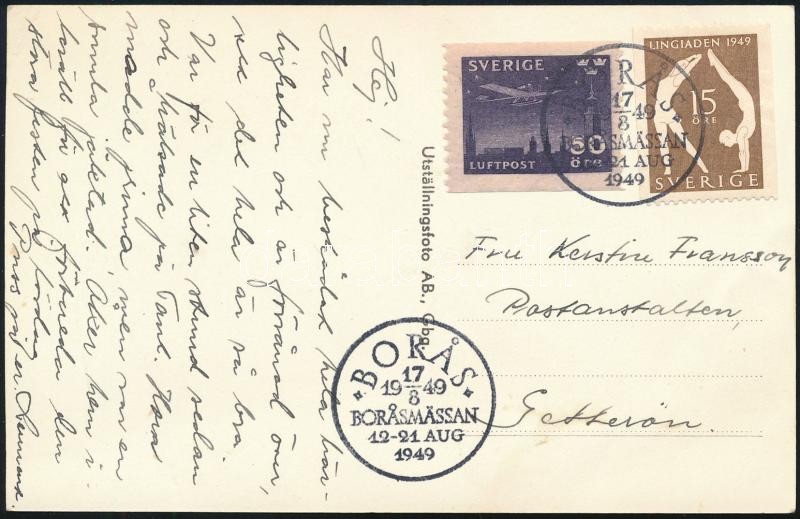 Hej!
Har nu beskådat hela här-
ligheten och är förvånad över,
det hela är så bra.
Var för en liten stund sedan
och hälsade på Tant. Hon
madde prima men var en
smula jäktad. Åker hem i-
kväll för att förbereda den
stora festen på lördag
Puss på er.
Utställningsfoto AB., Gbg
SVERIGE
50
öre
LUFTPOST
LINGIADEN 1949
15
ÖRE
SVERIGE
BORÅS
17
19 49
8
BORÅSMÄSSAN
12-21 AUG
1949
Fru Kerstin Fransson
Postanstalten,
Getterön.
BORÅS
17
19 49
8
BORÅSMÄSSAN
12-21 AUG
1949